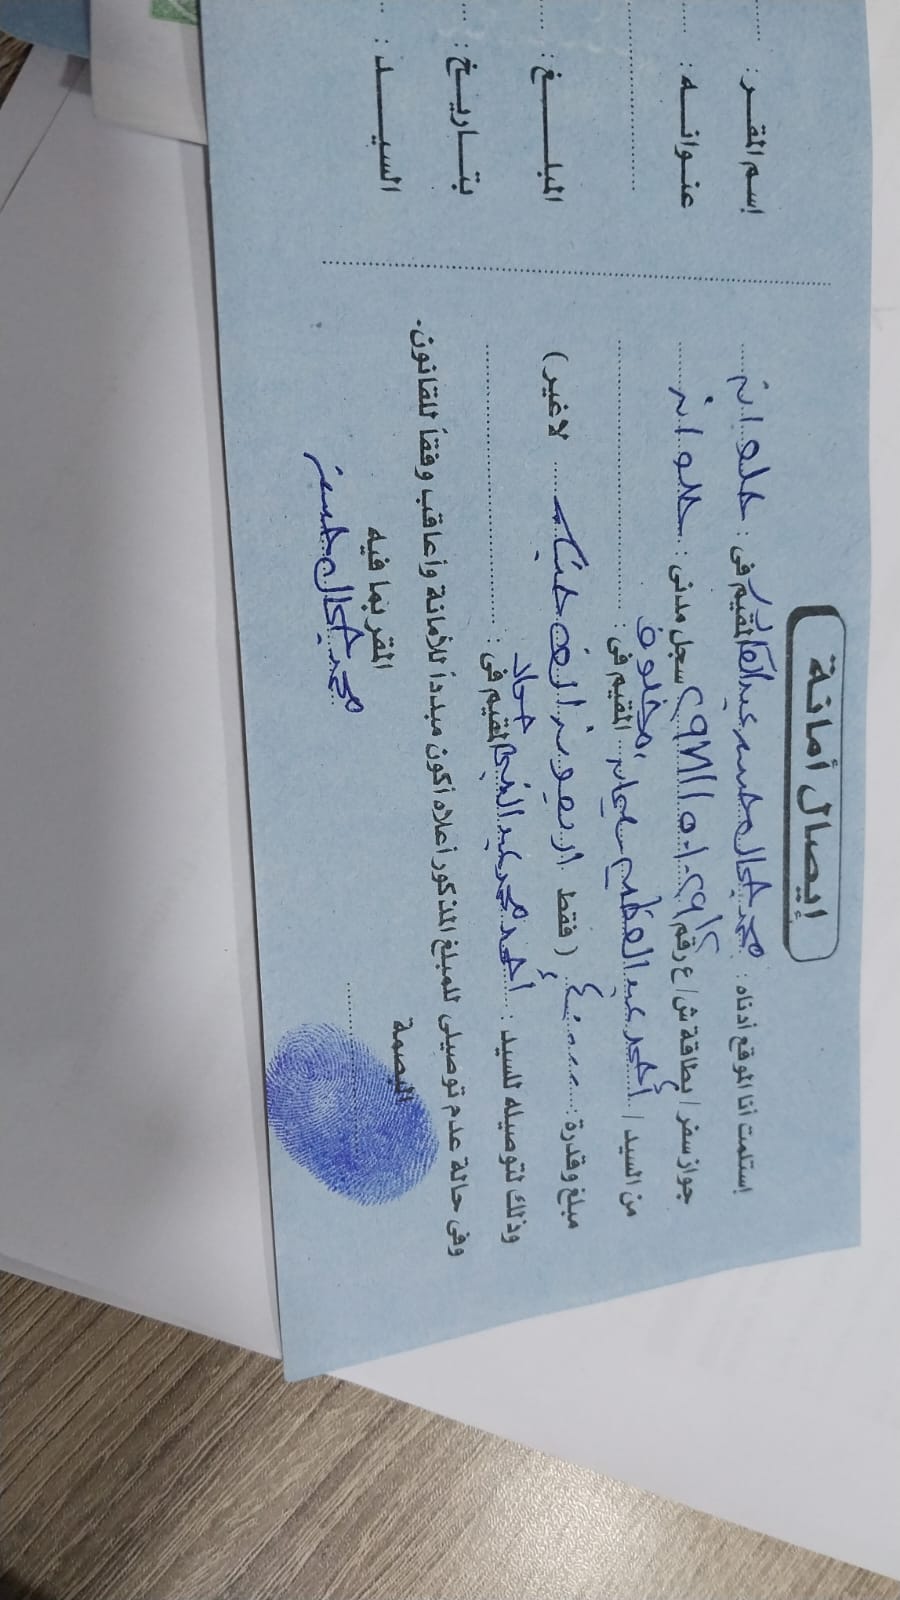 إيصال أمانة
إستلمت أنا الموقع أدناه : محمد جمال حسن عبد المقيم فى : حلوان
جواز سفر / بطاقة ش / ع رقم سجل مدنى : حلوان
من السيد / أحمد عبد العظيم مخلوف المقيم فى :
مبلغ وقدرة : ( فقط اربعون الف جنيه لاغير )
وذلك لتوصيله للسيد : أحمد محمد عبد النبى حماد المقيم فى :
وفى حالة عدم توصيلى للمبلغ المذكور أعلاه أكون مبدداً للأمانة وأعاقب وفقاً للقانون.
البصمة
المقر بما فيه
محمد جمال حسن
إسم المقر :
عنوانه :
المبلغ :
بتاريخ :
السيد :